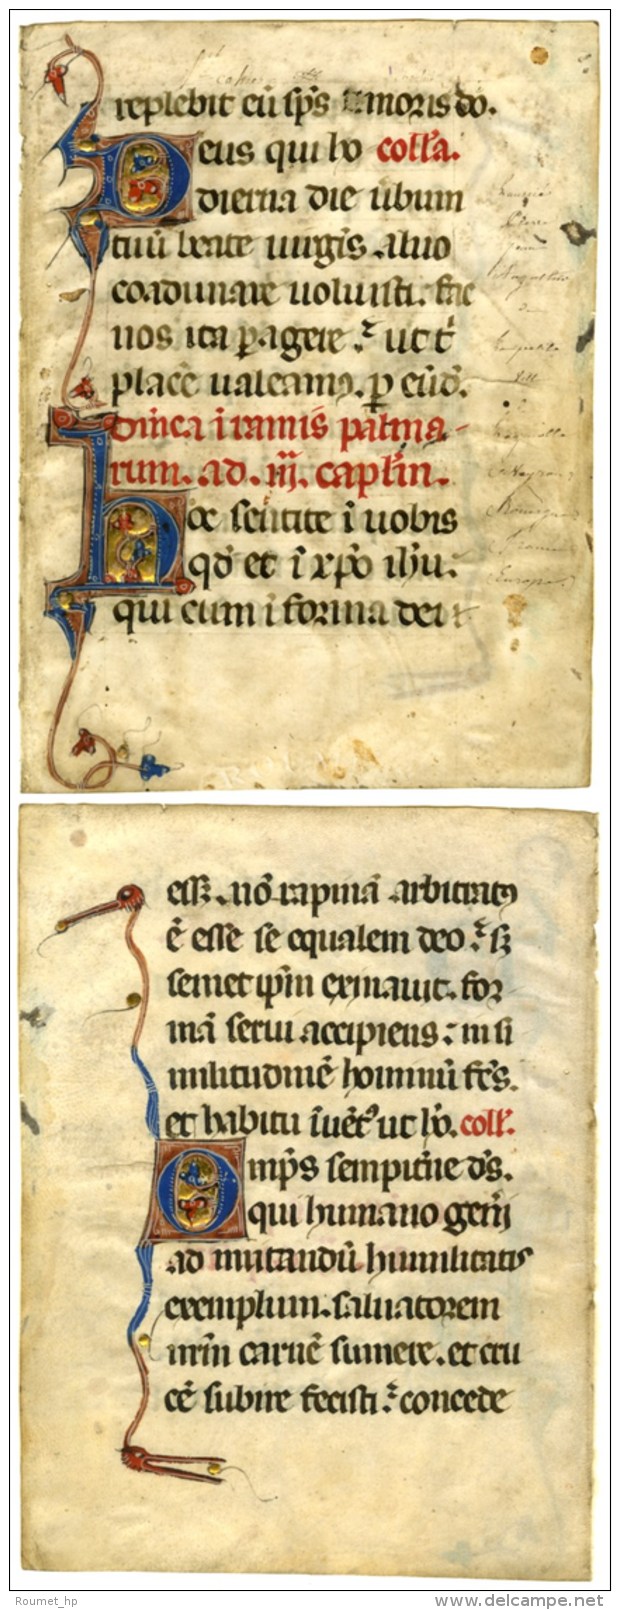 replebit eū sp̄s timoris do.
Deus qui ho coll'a.
dierna die ūbum
tuū beate uirgīs. aluo
coadunare uoluisti. fac
nos ita pagere. ut t'
placē ualeamꝰ. p eūd'.
Dm̄ica ī ramis palma-
rum. ad. iij. caplm̄.
Hoc sentite ī uobis
qd' et ī xp̄o ih̄u.
qui cum ī forma dei
ess;. nō rapinā arbitratꝰ
ē esse se equalem deo. s;
semet ip̄m exinaiuit. for
mā serui accipiens. in si
militudinē hominū fc̄s.
et habitu īuētꝰ ut hō. coll'.
Omp̄s sempit'ne d's.
qui humano gen'i
ad imitandū humilitatis
exemplum. saluatorem
nr̄m carnē sumere. et cru
cē subire fecisti. concede
Roumet_hp
www.delcampe.net